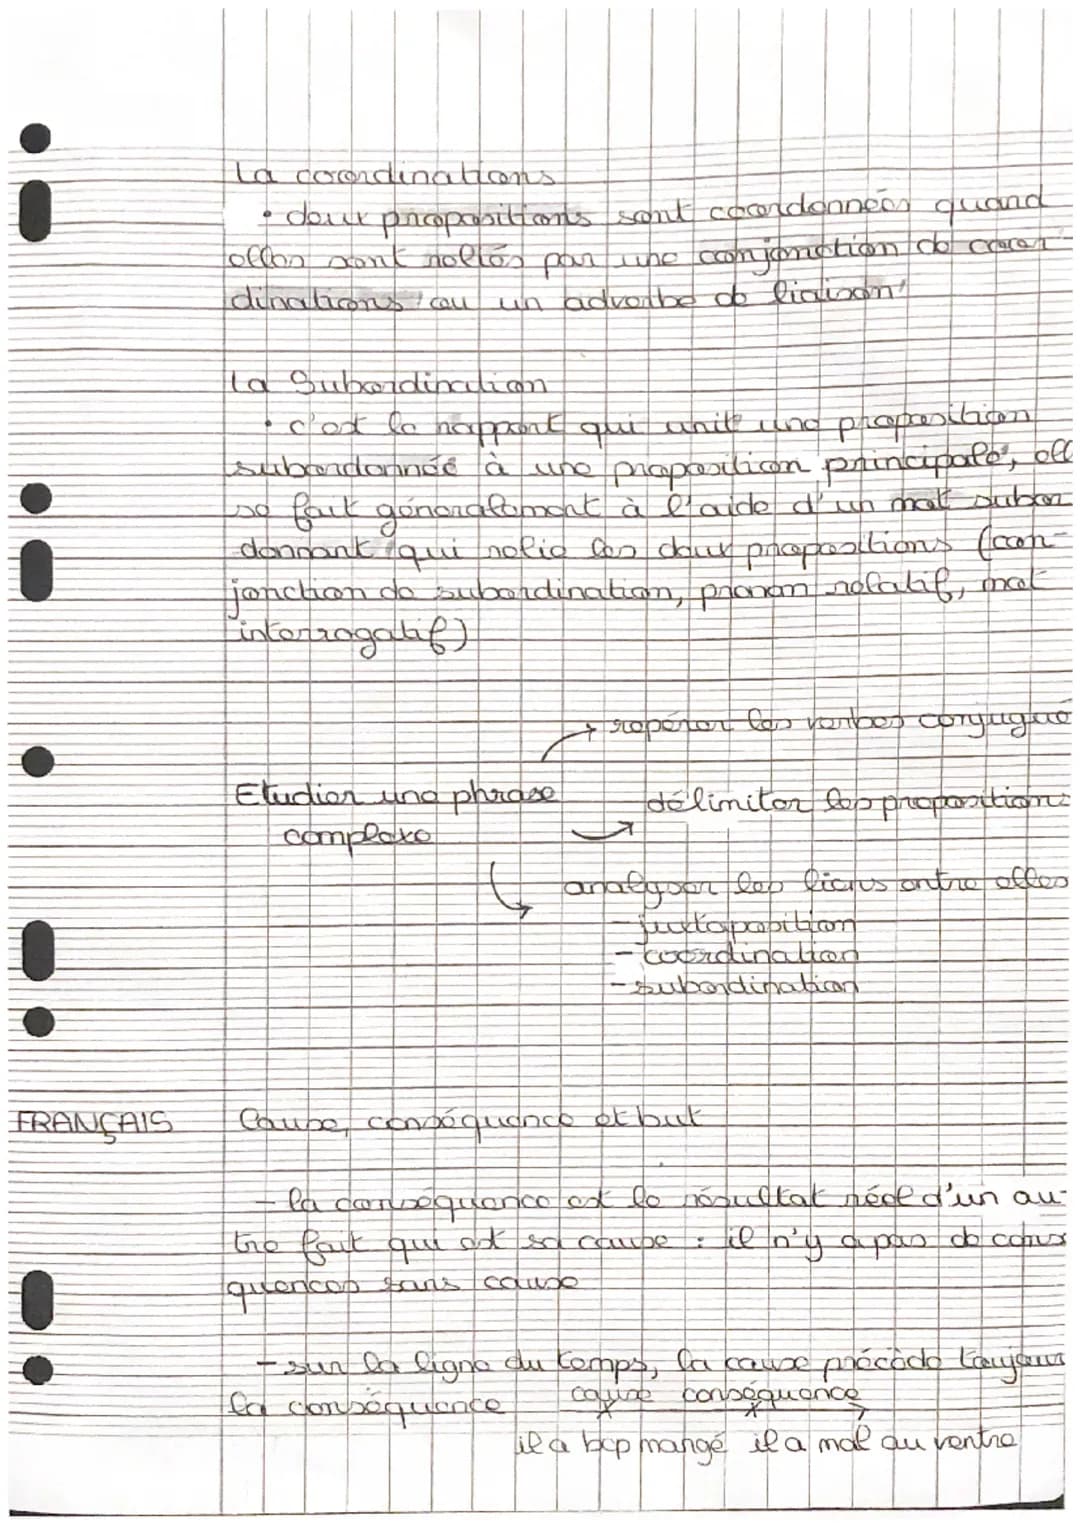 La coordinations
• deux propositions sont coordonnées quand
elles sont reliés par une conjonction de coor
dinations ou un adverbe de liaison
La Subordination
• c'est le rapport qui unit une proposition
subordonnée à une proposition principale, ell
se fait généralement à l'aide d'un mot subor
donnant qui relie les deux propositions (con-
jonction de subordination, pronom relatif, mot
interrogatif)
→ repérer les verbes conjugué
Etudier une phrase → délimiter les propositions
complexe
→ analyser les liens entre elles
- juxtaposition
- coordination
- subordination
FRANÇAIS Cause, conséquence et but
- la conséquence est le résultat réel d'un au-
tre fait qui est sa cause : il n'y a pas de cons
quences sans cause
- sur la ligne du temps, la cause précède toujours
la conséquence cause conséquence
il a bcp mangé il a mal au ventre